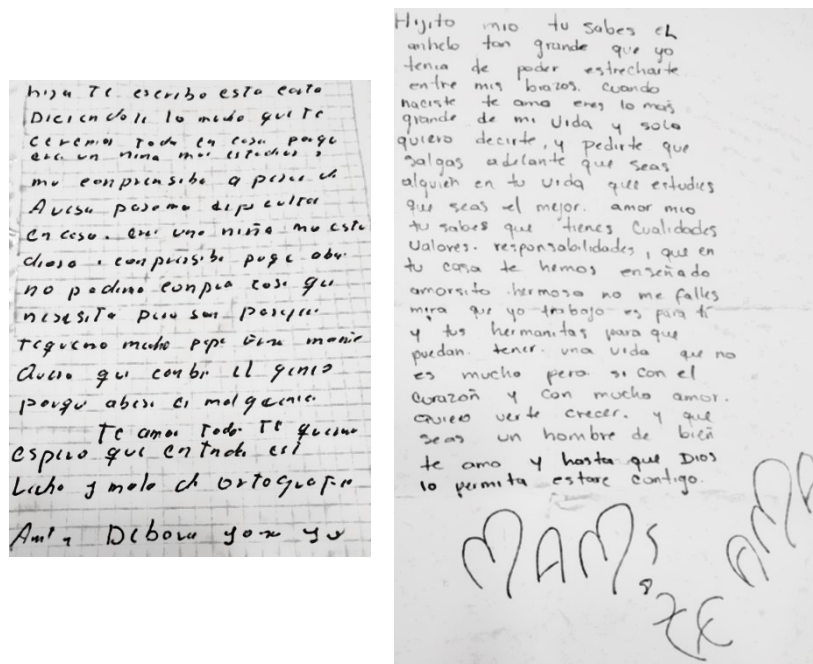 hija Te escribo esta carta
Diciendole lo mucho que Te
queremos Toda en casa porque
ere un niña mui estudiosa
mu conprensiba a pesar de
A vese pasamo dificulta
En casa. ere una niña mu estu
diosa i conprensiba puqe abse
no podemo conpra cosa que
nesesita pero son porque
Tequeremo mucho papa
Quiero que canbie el genio
porque abese es mal genia
Te amo Todo Te queremo
espero que entienda esta
Lecho y mala de ortografia
Debora yon
Hijito mio tu sabes el
anhelo tan grande que yo
tenia de poder estrecharte
entre mis brazos. Cuando
naciste te amo eres lo mas
grande de mi vida y solo
quiero decirte, y pedirte que
salgas adelante que seas
alguien en tu vida que estudies
que seas el mejor. amor mio
tu sabes que tienes Cualidades
Valores. responsabilidades, que en
tu casa te hemos enseñado
amorsito hermoso no me falles
mira que yo trabajo es para ti
y tus hermanitas para que
puedan tener una vida que no
es mucho pero si con el
Corazón y con mucho amor.
Quiero verte crecer. y que
seas un hombre de bien
te amo y hasta que Dios
lo permita estare contigo.